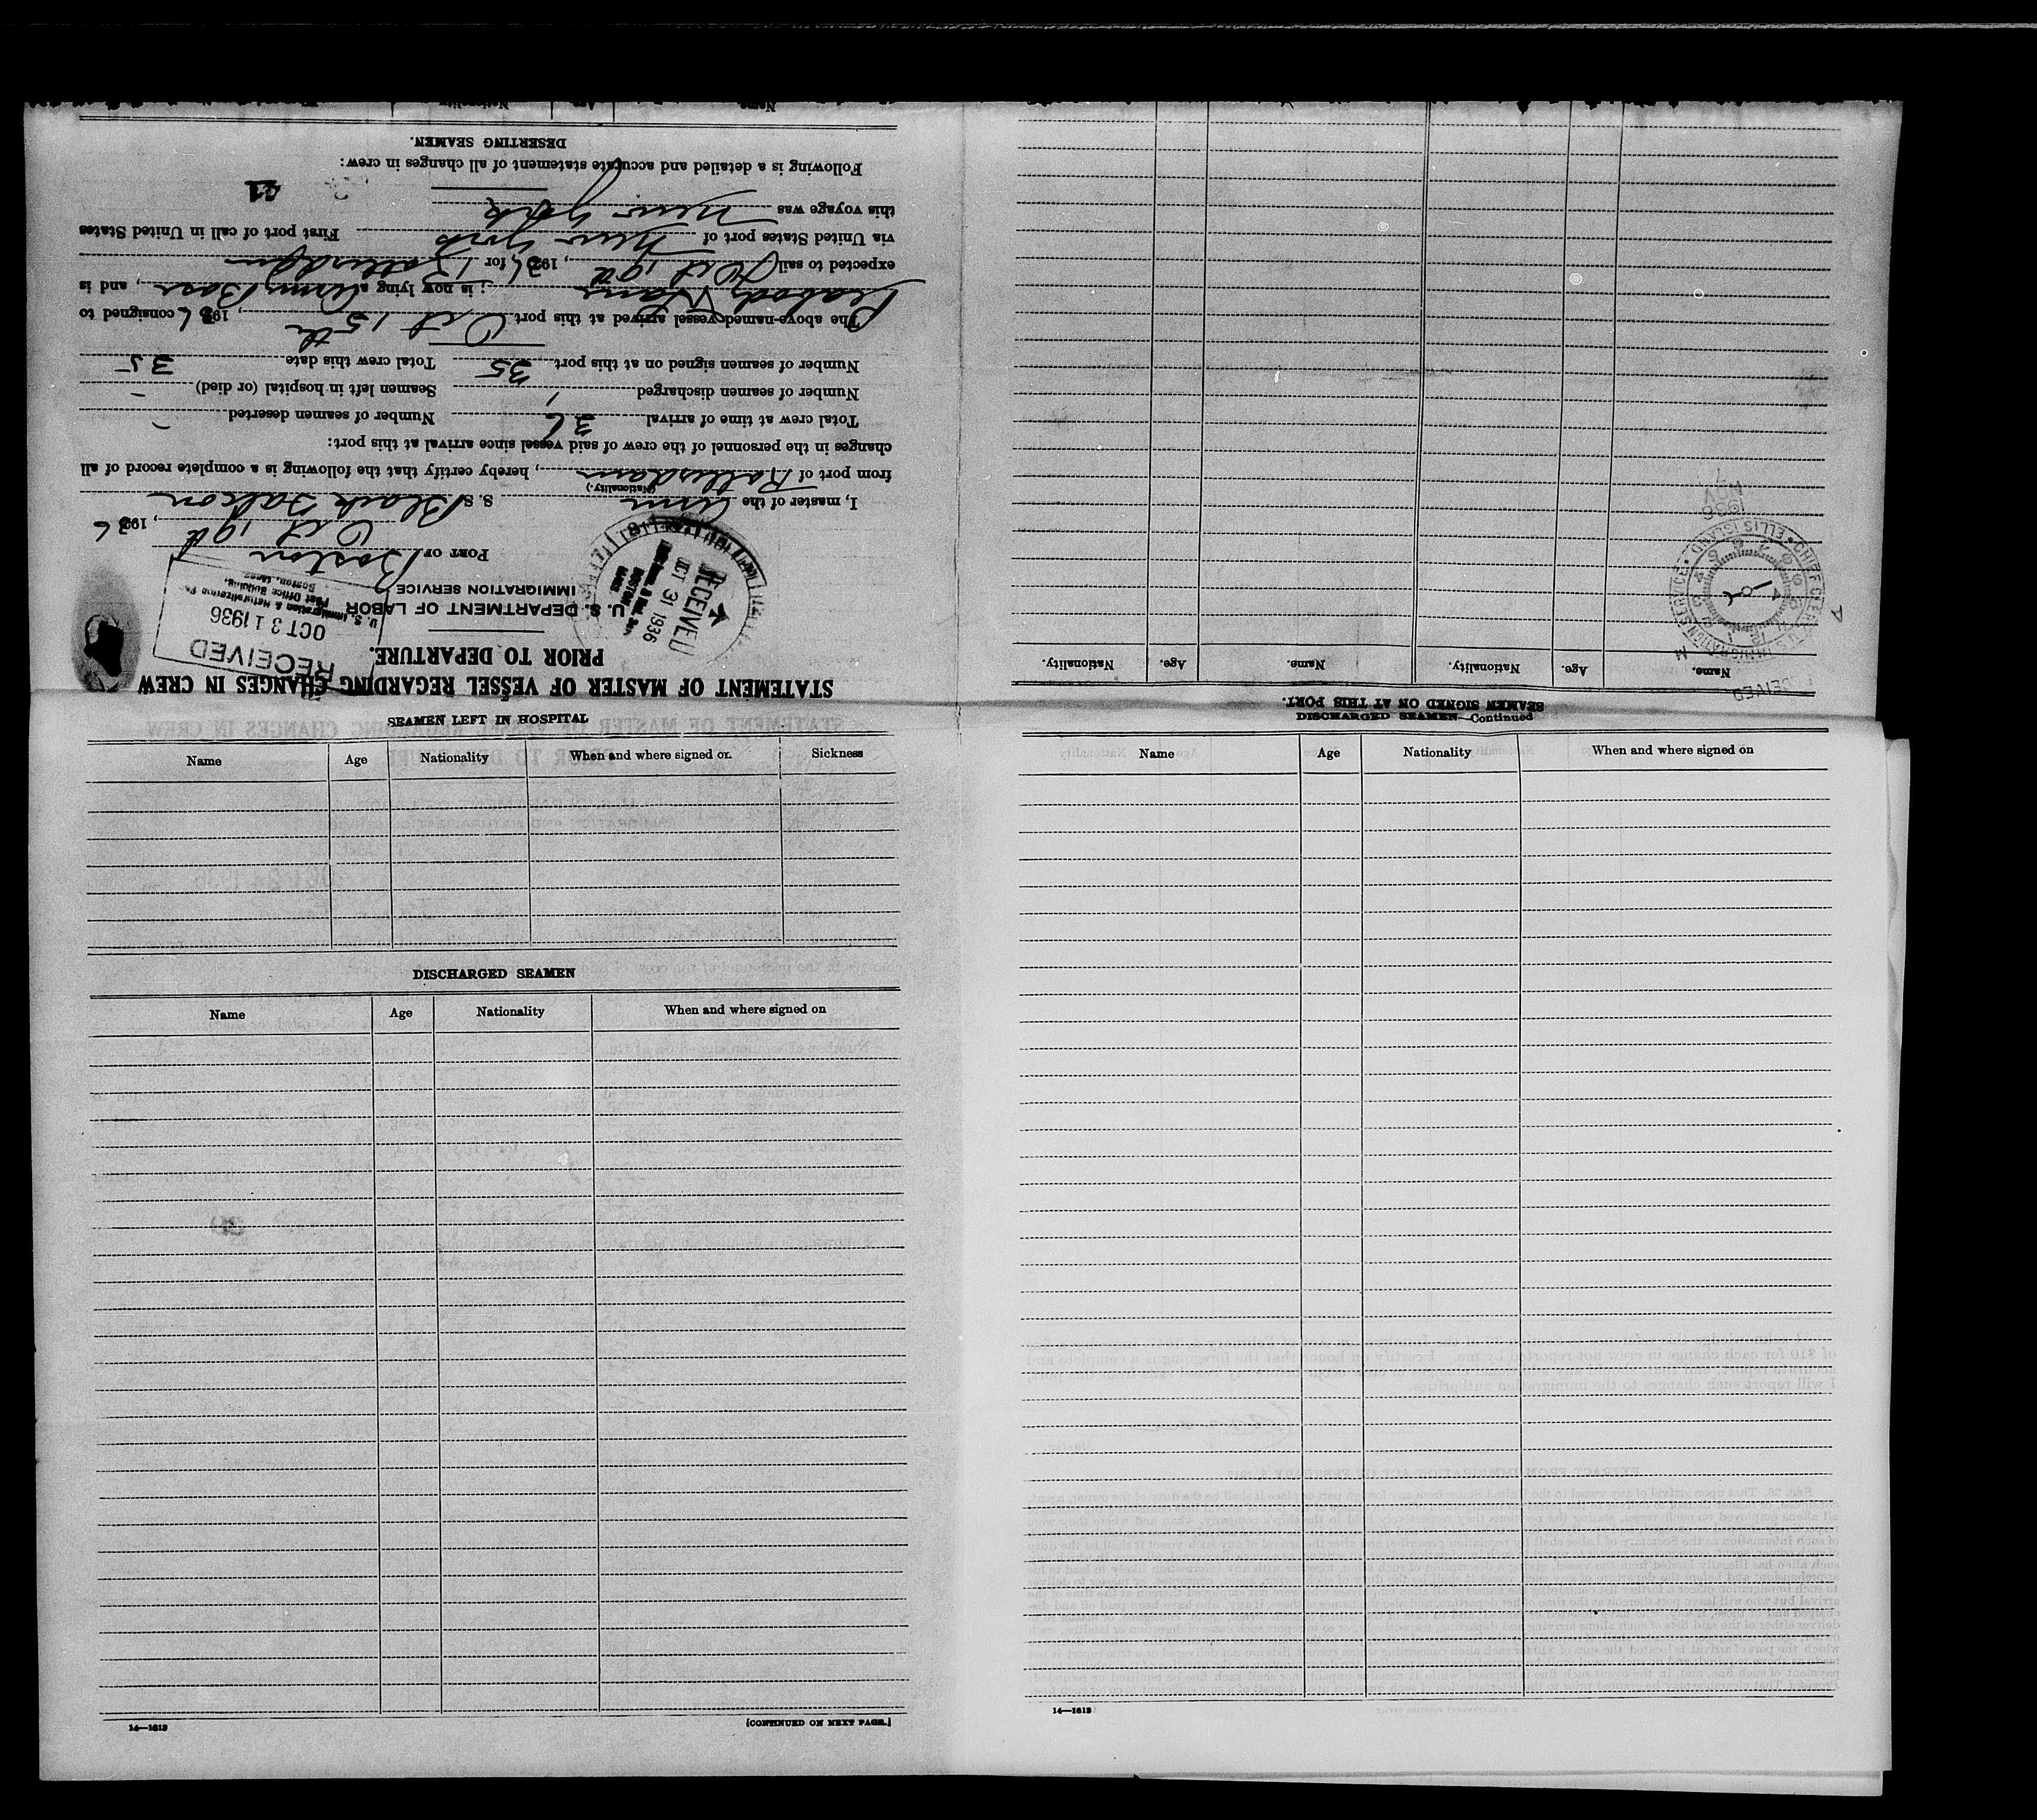 STATEMENT OF MASTER OF VESSEL REGARDING CHANGES IN CREW
PRIOR TO DEPARTURE.
U. S. DEPARTMENT OF LABOR
IMMIGRATION SERVICE
RECEIVED
OCT 31 1936
Post Office Building,
Boston, Mass.
RECEIVED
OCT 31 1936
BOSTON
MASS
PORT OF Boston
Oct 19th, 1936
I, master of the Am S. S. Black Falcon
(Nationality.)
from port of Rotterdam, hereby certify that the following is a complete record of all
changes in the personnel of the crew of said vessel since arrival at this port:
Total crew at time of arrival 36 Number of seamen deserted –
Number of seamen discharged 1 Seamen left in hospital (or died) –
Number of seamen signed on at this port 35 Total crew this date 35
The above-named vessel arrived at this port Oct 15th, 1936 consigned to
Peabody ; is now lying at Army Base, and is
expected to sail Oct 19th, 1936 for Rotterdam
via United States port of New York First port of call in United States
this voyage was New York
Following is a detailed and accurate statement of all changes in crew:
DESERTING SEAMEN.
Name Age Nationality
SEAMEN SIGNED ON AT THIS PORT.
Name. Age. Nationality. Name. Age. Nationality.
RECEIVED
CHIEF CLERK U.S. IMMIGRATION SERVICE ELLIS ISLAND
1936
NOV
7
SEAMEN LEFT IN HOSPITAL
Name Age Nationality When and where signed on. Sickness
DISCHARGED SEAMEN
Name Age Nationality When and where signed on
14—1613 [CONTINUED ON NEXT PAGE.]
DISCHARGED SEAMEN—Continued
Name Age Nationality When and where signed on
14—1613